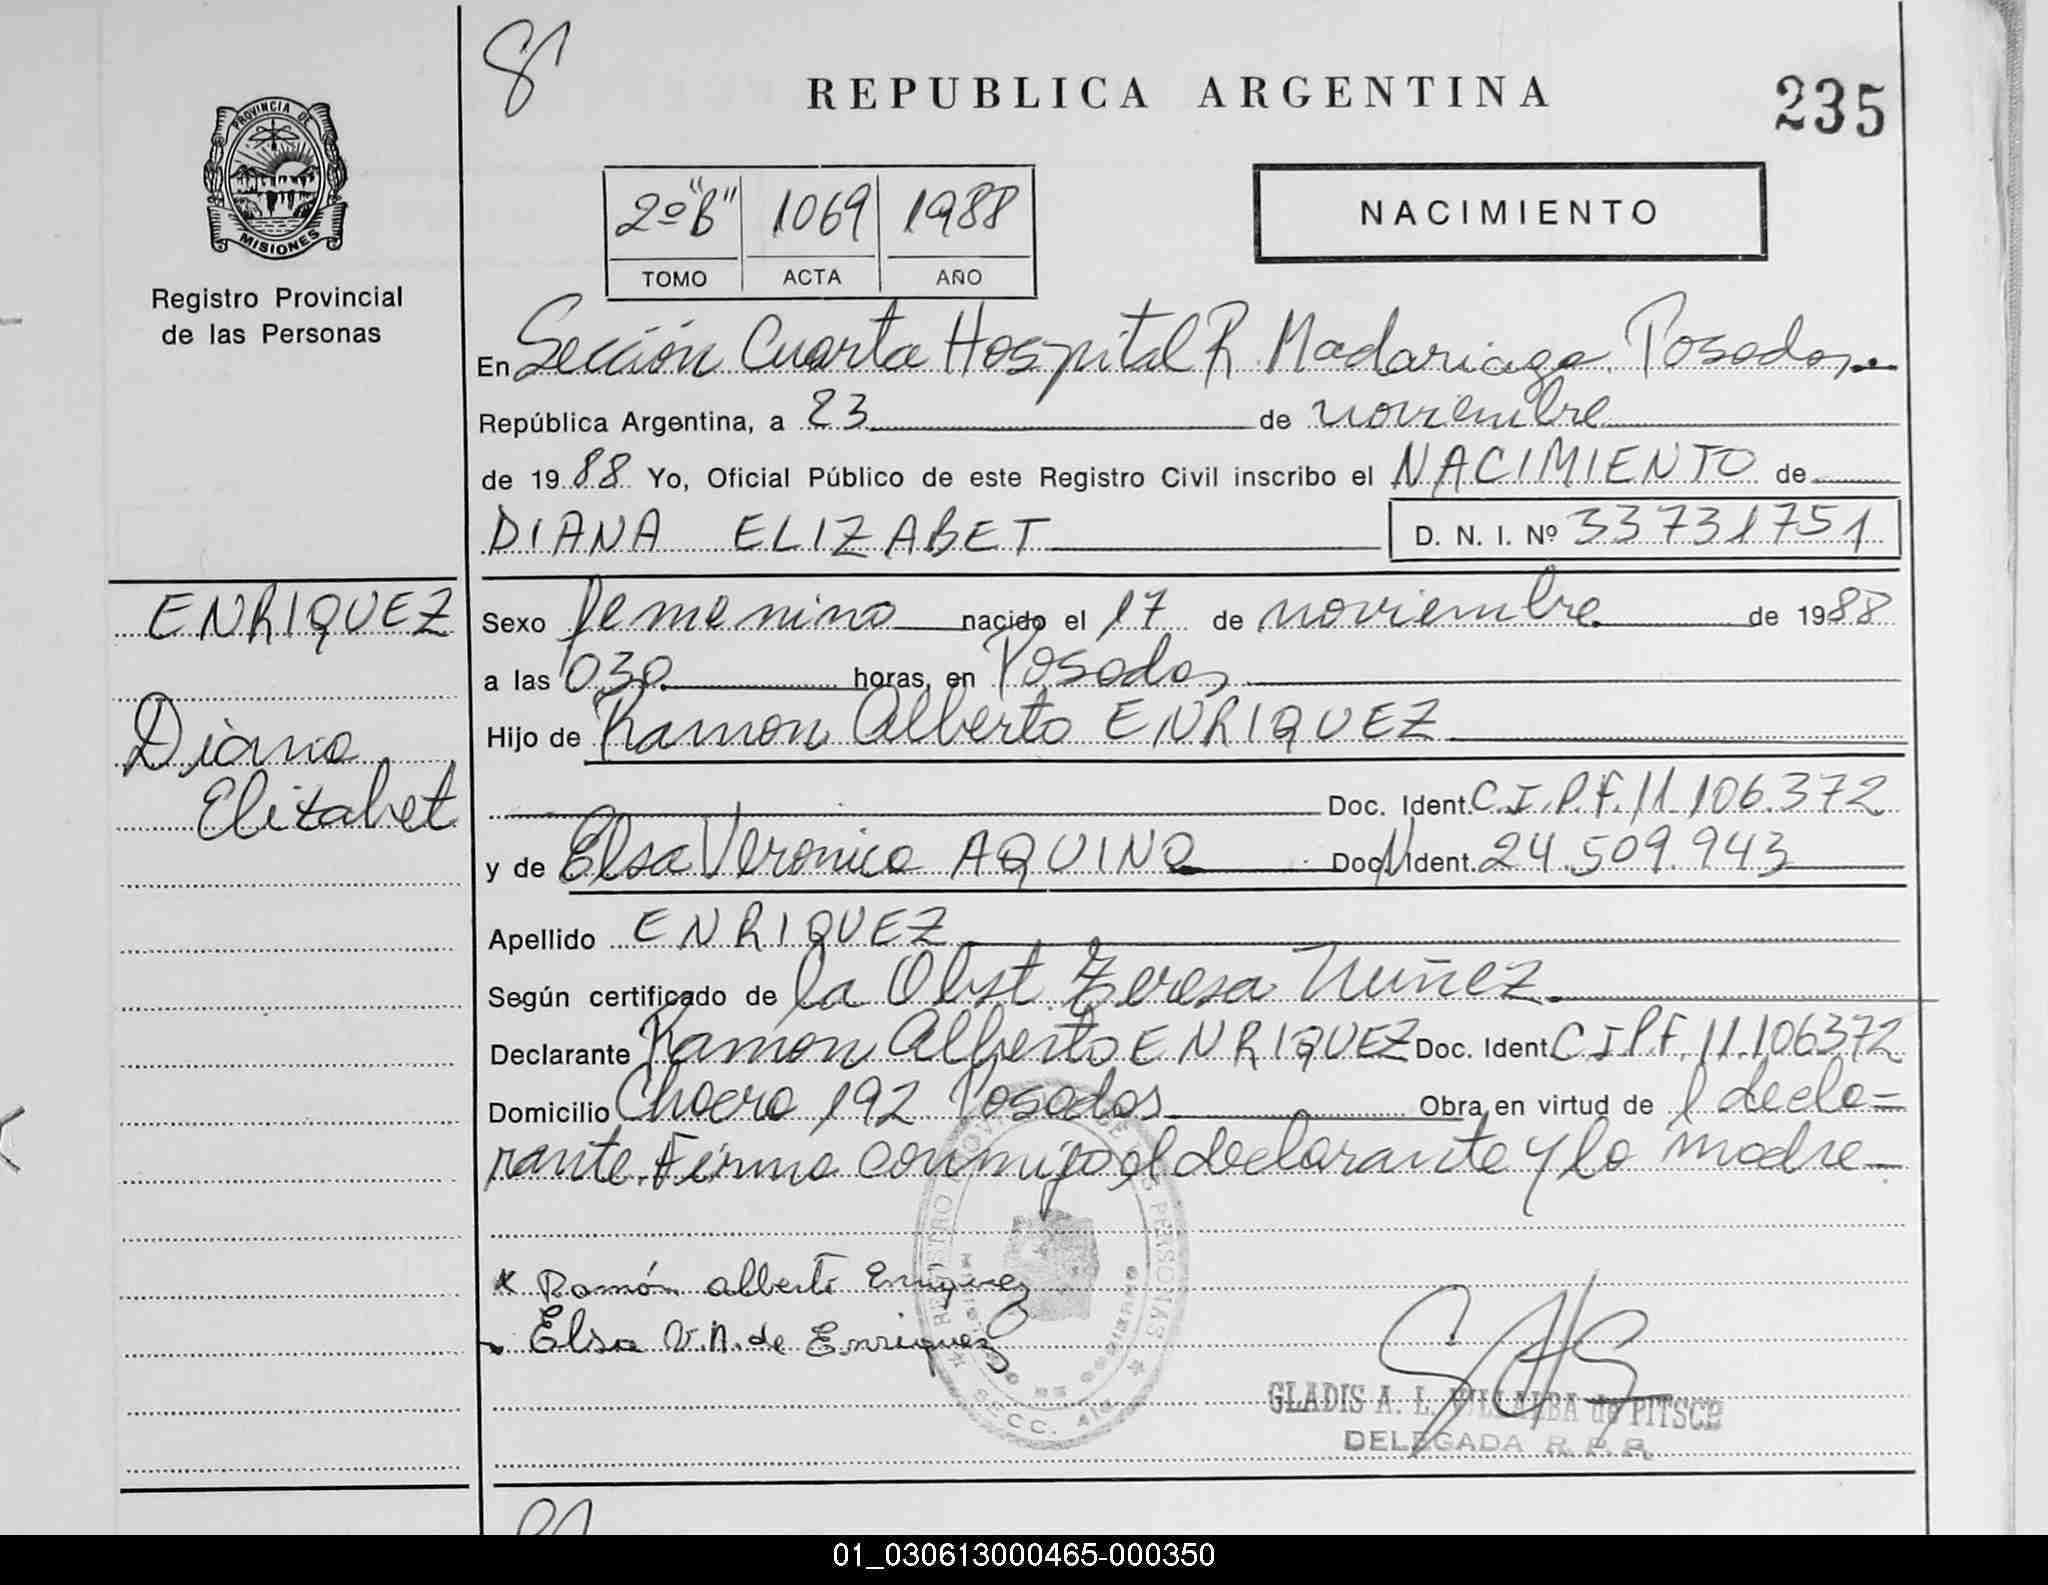 REPUBLICA ARGENTINA
235
PROVINCIA DE
MISIONES
Registro Provincial
de las Personas
2º "B" 1069 1988
TOMO ACTA AÑO
NACIMIENTO
En Sección Cuarta Hospital R. Madariaga. Posadas
República Argentina, a 23 de noviembre
de 1988 Yo, Oficial Público de este Registro Civil inscribo el NACIMIENTO de
DIANA ELIZABET D. N. I. Nº 33731751
ENRIQUEZ
Diana
Elizabet
Sexo femenino nacido el 17 de noviembre de 1988
a las 030 horas, en Posadas
Hijo de Ramon Alberto ENRIQUEZ
Doc. Ident. C.I.P.F. 11.106.372
y de Elsa Veronica AQUINO Doc. Ident. 24.509.943
Apellido ENRIQUEZ
Según certificado de la Obst. Teresa Nuñez
Declarante Ramon Alberto ENRIQUEZ Doc. Ident. C I P.F. 11.106372
Domicilio Chaco 192 Posadas Obra en virtud de l decla=
rante. Firma conmigo el declarante y la madre
x Ramón alberto Enriquez
Elsa V.A. de Enriquez
GLADIS A. L. VILLALBA de PITSCH
DELEGADA R. P. P.
01_030613000465-000350